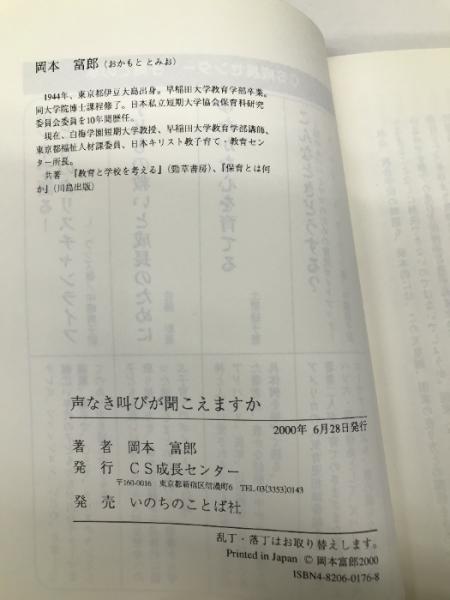 岡本 富郎（おかもと とみお）
1944年、東京都伊豆大島出身。早稲田大学教育学部卒業。
同大学院博士課程修了。日本私立短期大学協会保育科研究
委員会委員を10年間歴任。
現在、白梅学園短期大学教授、早稲田大学教育学部講師、
東京都福祉人材課委員、日本キリスト教子育て・教育セン
ター所長。
共著 『教育と学校を考える』（勁草書房）、『保育とは何
か』（川島出版）
声なき叫びが聞こえますか
2000年 6月28日発行
著 者 岡本 富郎
発 行 ＣＳ成長センター
〒160-0016 東京都新宿区信濃町6 TEL 03(3353)0143
発 売 いのちのことば社
乱丁・落丁はお取り替えします。
Printed in Japan © 岡本富郎2000
ISBN4-8206-0176-8